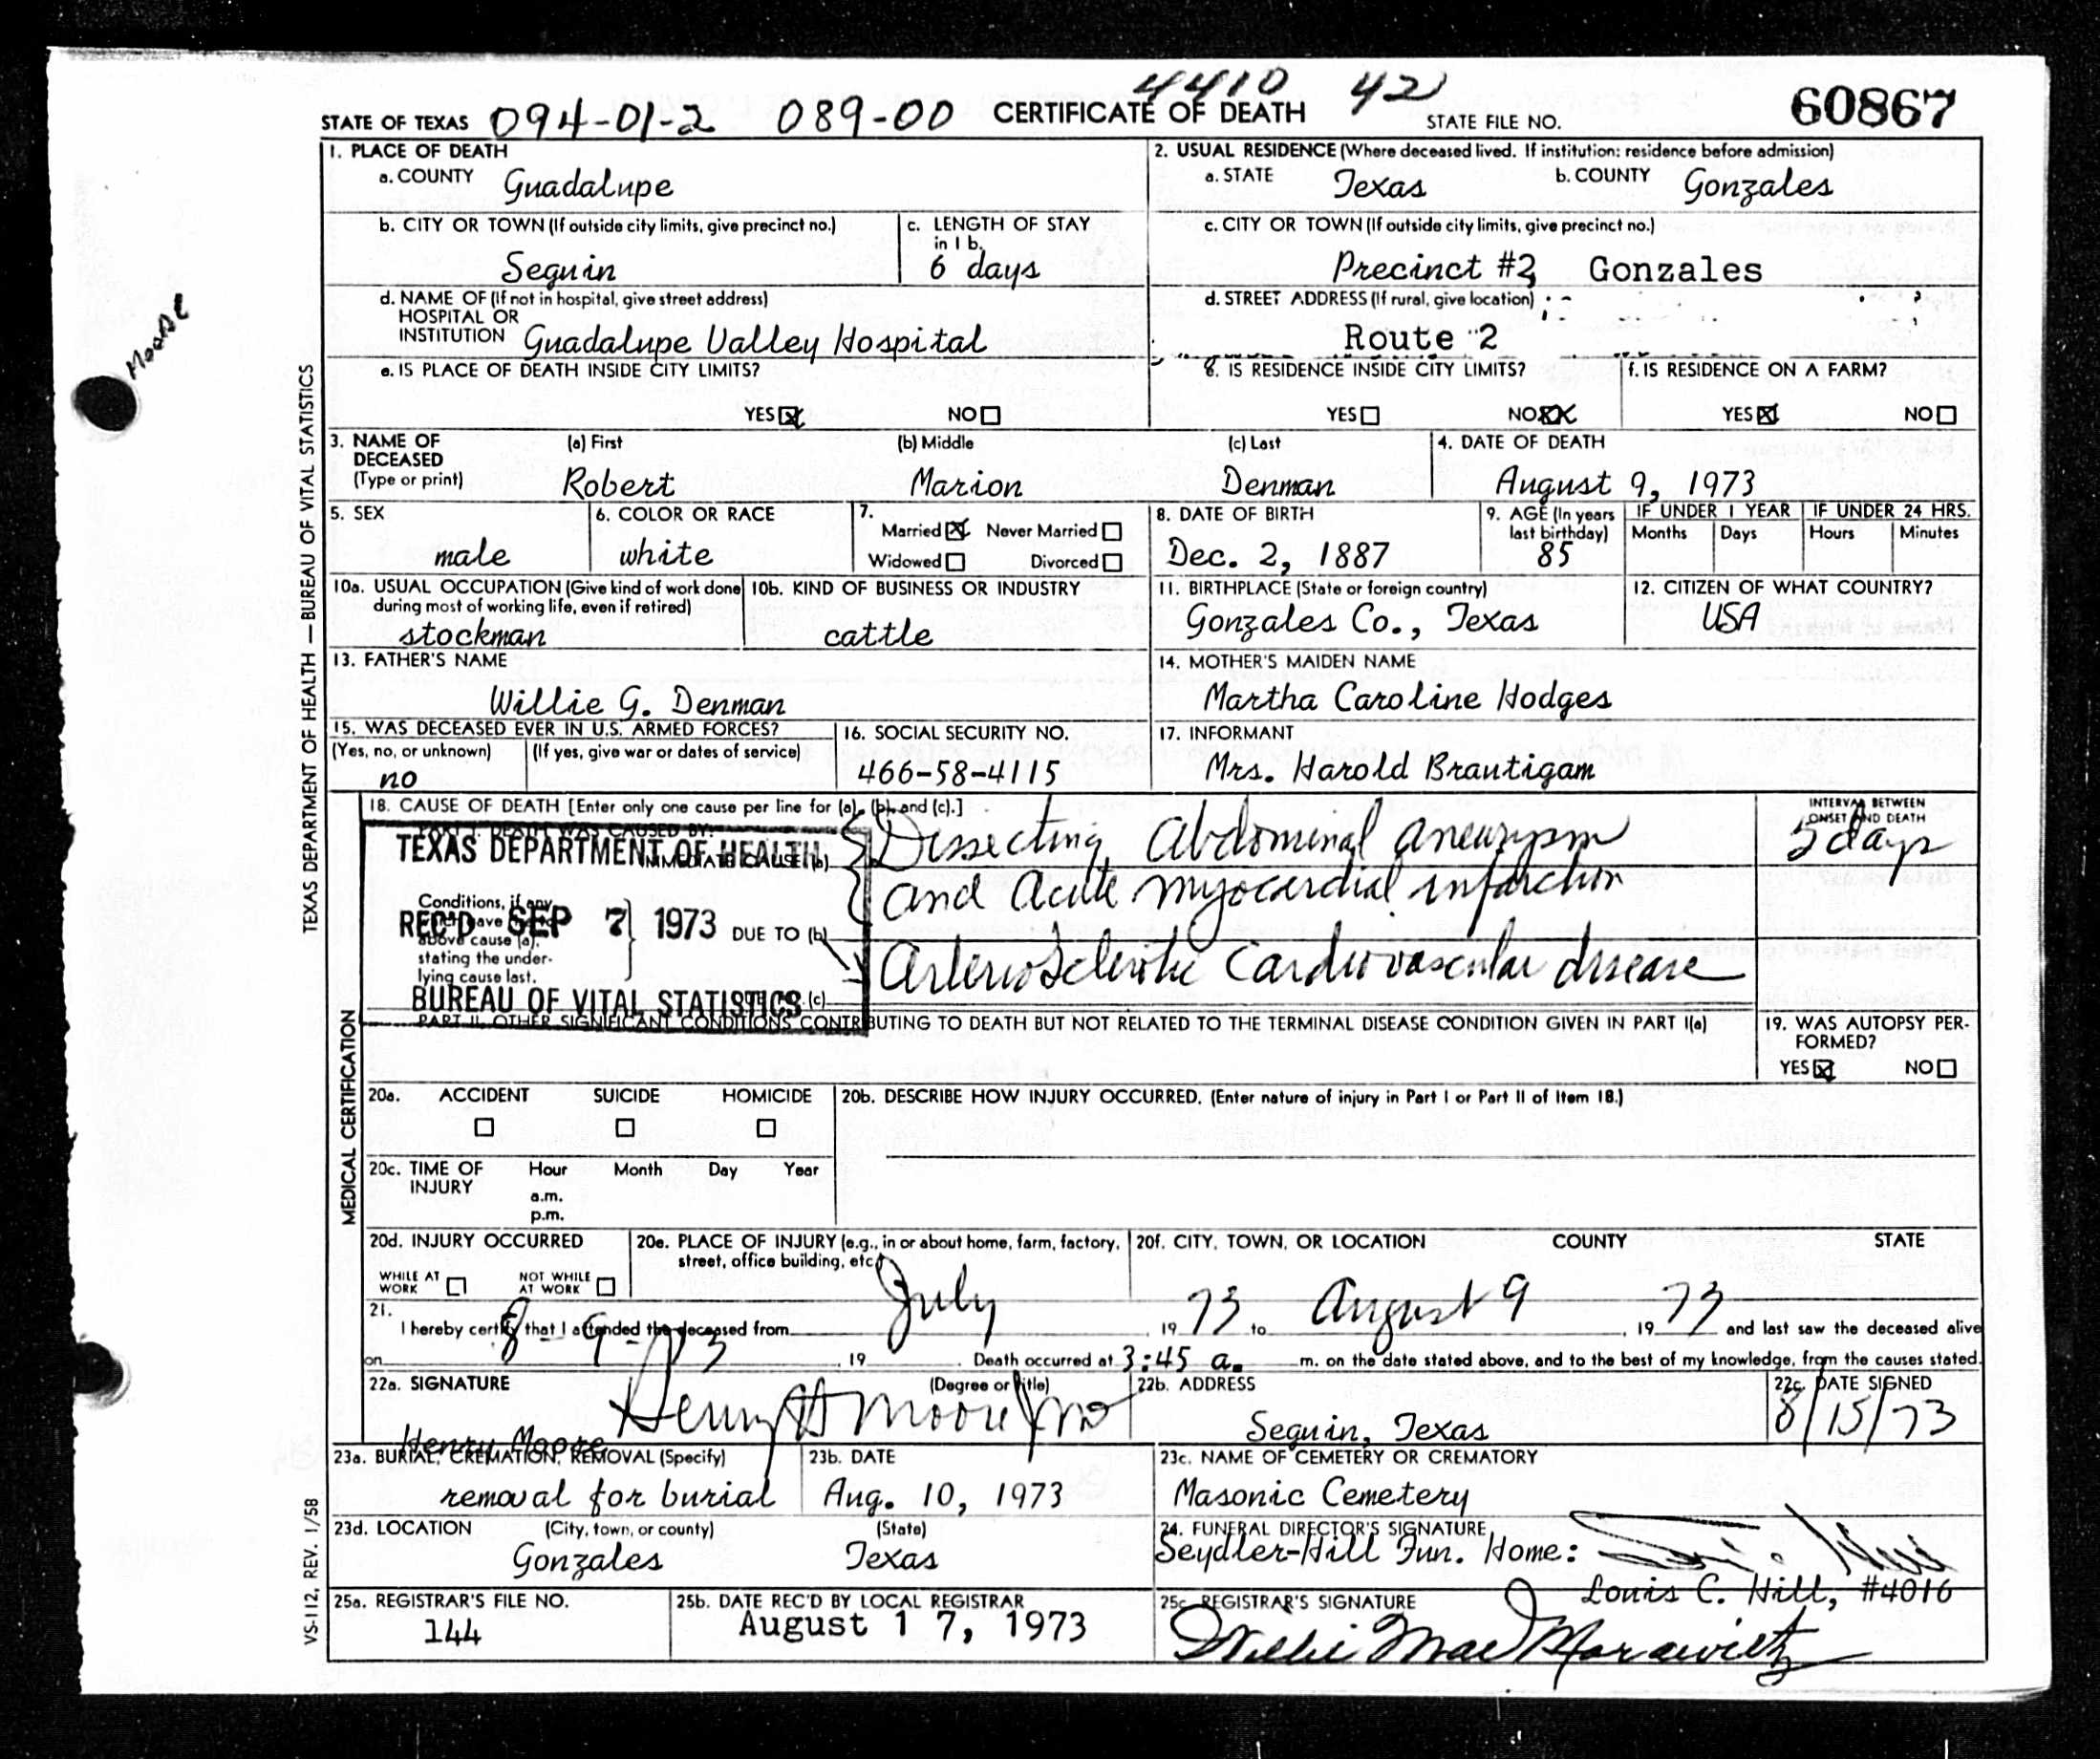 4410 42
STATE OF TEXAS 094-01-2 089-00 CERTIFICATE OF DEATH STATE FILE NO. 60867
1. PLACE OF DEATH
a. COUNTY Guadalupe
2. USUAL RESIDENCE (Where deceased lived. If institution: residence before admission)
a. STATE Texas b. COUNTY Gonzales
b. CITY OR TOWN (If outside city limits, give precinct no.)
Seguin
c. LENGTH OF STAY
in 1 b.
6 days
c. CITY OR TOWN (If outside city limits, give precinct no.)
Precinct #2 Gonzales
d. NAME OF (If not in hospital, give street address)
HOSPITAL OR
INSTITUTION Guadalupe Valley Hospital
d. STREET ADDRESS (If rural, give location)
Route 2
e. IS PLACE OF DEATH INSIDE CITY LIMITS?
YES NO
e. IS RESIDENCE INSIDE CITY LIMITS?
YES NO
f. IS RESIDENCE ON A FARM?
YES NO
Moore
3. NAME OF
DECEASED
(Type or print)
(a) First (b) Middle (c) Last
Robert Marion Denman
4. DATE OF DEATH
August 9, 1973
5. SEX
male
6. COLOR OR RACE
white
7.
Married Never Married
Widowed Divorced
8. DATE OF BIRTH
Dec. 2, 1887
9. AGE (In years
last birthday)
85
IF UNDER 1 YEAR
Months Days
IF UNDER 24 HRS.
Hours Minutes
10a. USUAL OCCUPATION (Give kind of work done
during most of working life, even if retired)
stockman
10b. KIND OF BUSINESS OR INDUSTRY
cattle
11. BIRTHPLACE (State or foreign country)
Gonzales Co., Texas
12. CITIZEN OF WHAT COUNTRY?
USA
13. FATHER'S NAME
Willie G. Denman
14. MOTHER'S MAIDEN NAME
Martha Caroline Hodges
15. WAS DECEASED EVER IN U.S. ARMED FORCES?
(Yes, no, or unknown) (If yes, give war or dates of service)
no
16. SOCIAL SECURITY NO.
466-58-4115
17. INFORMANT
Mrs. Harold Brautigam
TEXAS DEPARTMENT OF HEALTH — BUREAU OF VITAL STATISTICS
MEDICAL CERTIFICATION
18. CAUSE OF DEATH [Enter only one cause per line for (a), (b), and (c).]
PART I. DEATH WAS CAUSED BY:
IMMEDIATE CAUSE
Dissecting Abdominal aneurysm
and acute myocardial infarction
INTERVAL BETWEEN
ONSET AND DEATH
5 days
TEXAS DEPARTMENT OF HEALTH
REC'D SEP 7 1973
BUREAU OF VITAL STATISTICS
Conditions, if any,
which gave
above cause (a),
stating the under-
lying cause last.
DUE TO (b)
Arteriosclerotic Cardiovascular disease
(c)
PART II. OTHER SIGNIFICANT CONDITIONS CONTRIBUTING TO DEATH BUT NOT RELATED TO THE TERMINAL DISEASE CONDITION GIVEN IN PART I(a)
19. WAS AUTOPSY PER-
FORMED?
YES NO
20a. ACCIDENT SUICIDE HOMICIDE
20b. DESCRIBE HOW INJURY OCCURRED. (Enter nature of injury in Part I or Part II of Item 18.)
20c. TIME OF
INJURY
Hour Month Day Year
a.m.
p.m.
20d. INJURY OCCURRED
WHILE AT
WORK
NOT WHILE
AT WORK
20e. PLACE OF INJURY (e.g., in or about home, farm, factory,
street, office building, etc.)
20f. CITY, TOWN, OR LOCATION COUNTY STATE
21.
I hereby certify that I attended the deceased from July, 19 73 to August 9, 19 73 and last saw the deceased alive
on 8-9-73, 19 . Death occurred at 3:45 a. m. on the date stated above, and to the best of my knowledge, from the causes stated.
22a. SIGNATURE (Degree or title)
Henry H Moore Jr MD
Henry Moore
22b. ADDRESS
Seguin, Texas
22c. DATE SIGNED
8/15/73
23a. BURIAL, CREMATION, REMOVAL (Specify)
removal for burial
23b. DATE
Aug. 10, 1973
23c. NAME OF CEMETERY OR CREMATORY
Masonic Cemetery
23d. LOCATION (City, town, or county) (State)
Gonzales Texas
24. FUNERAL DIRECTOR'S SIGNATURE
Seydler-Hill Fun. Home:
Louis C. Hill, #4016
25a. REGISTRAR'S FILE NO.
144
25b. DATE REC'D BY LOCAL REGISTRAR
August 17, 1973
25c. REGISTRAR'S SIGNATURE
Willie Mae Morawietz
VS-112, REV. 1/58